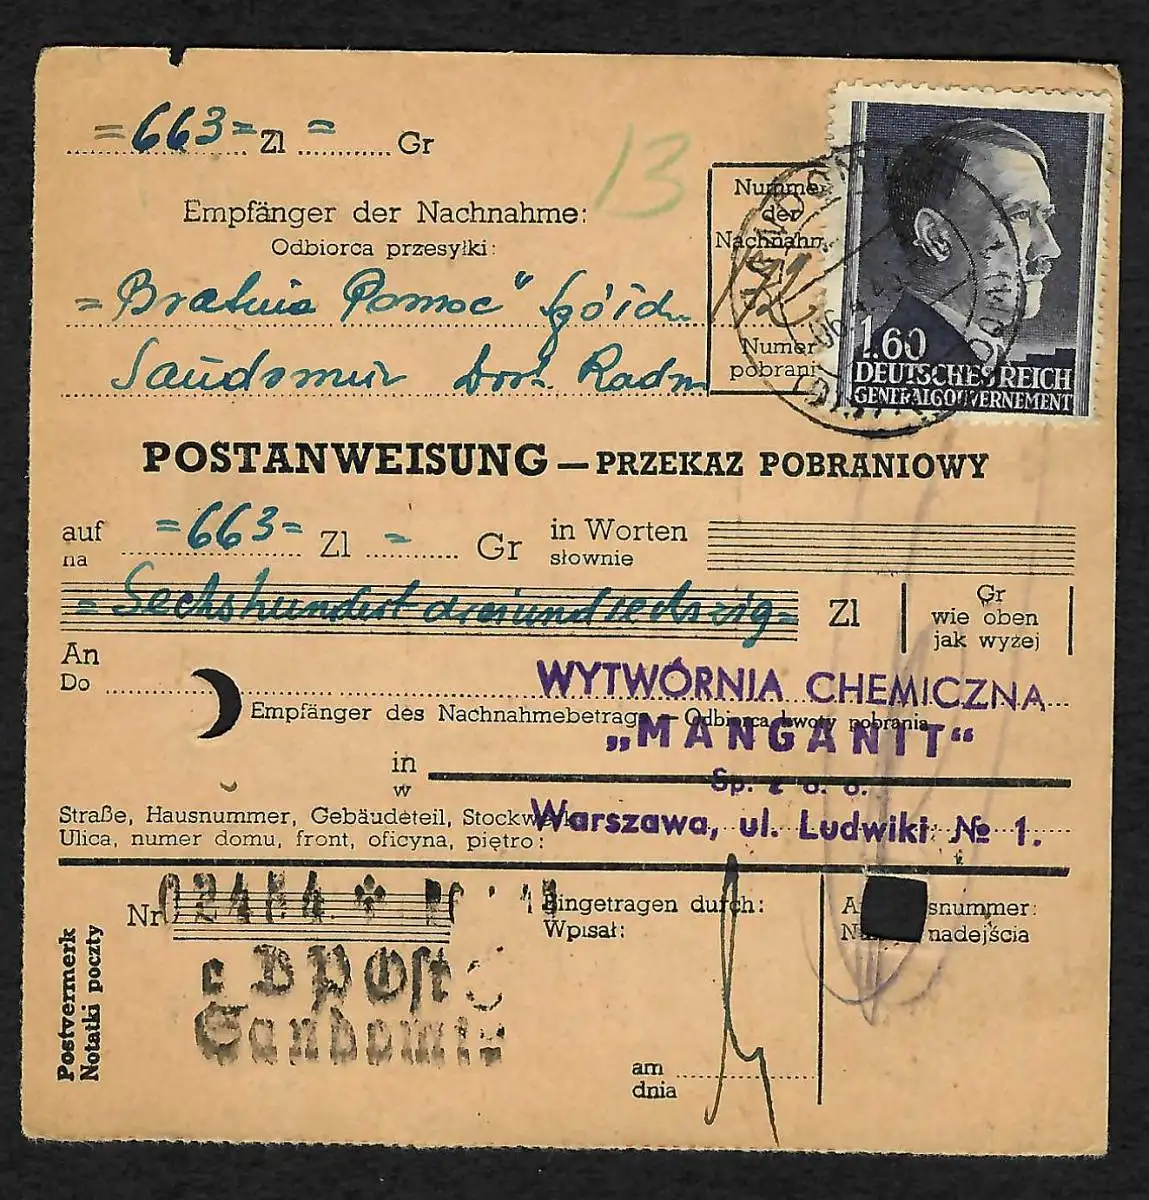 =663= Zl = Gr
13
Empfänger der Nachnahme:
Odbiorca przesyłki:
="Bratnia Pomoc"
Distr. Radm
Numme
der
Nachnahm
Numer
pobrani
1.60
DEUTSCHES REICH
GENERALGOUVERNEMENT
POSTANWEISUNG — PRZEKAZ POBRANIOWY
auf =663= Zl = Gr in Worten
na słownie
=Sechshundertdreiundsechszig= Zl Gr
wie oben
jak wyżej
An
Do
WYTWÓRNIA CHEMICZNA
Empfänger des Nachnahmebetrag — Odbiorca kwoty pobrania
„MANGANIT"
in
w
Sp. z o. o.
Straße, Hausnummer, Gebäudeteil, Stockwerk
Warszawa, ul. Ludwiki № 1.
Ulica, numer domu, front, oficyna, piętro:
Postvermerk
Notatki poczty
Nr
Eingetragen durch:
Wpisał:
A snummer:
N nadejścia
DPOst
Sandomir
am
dnia